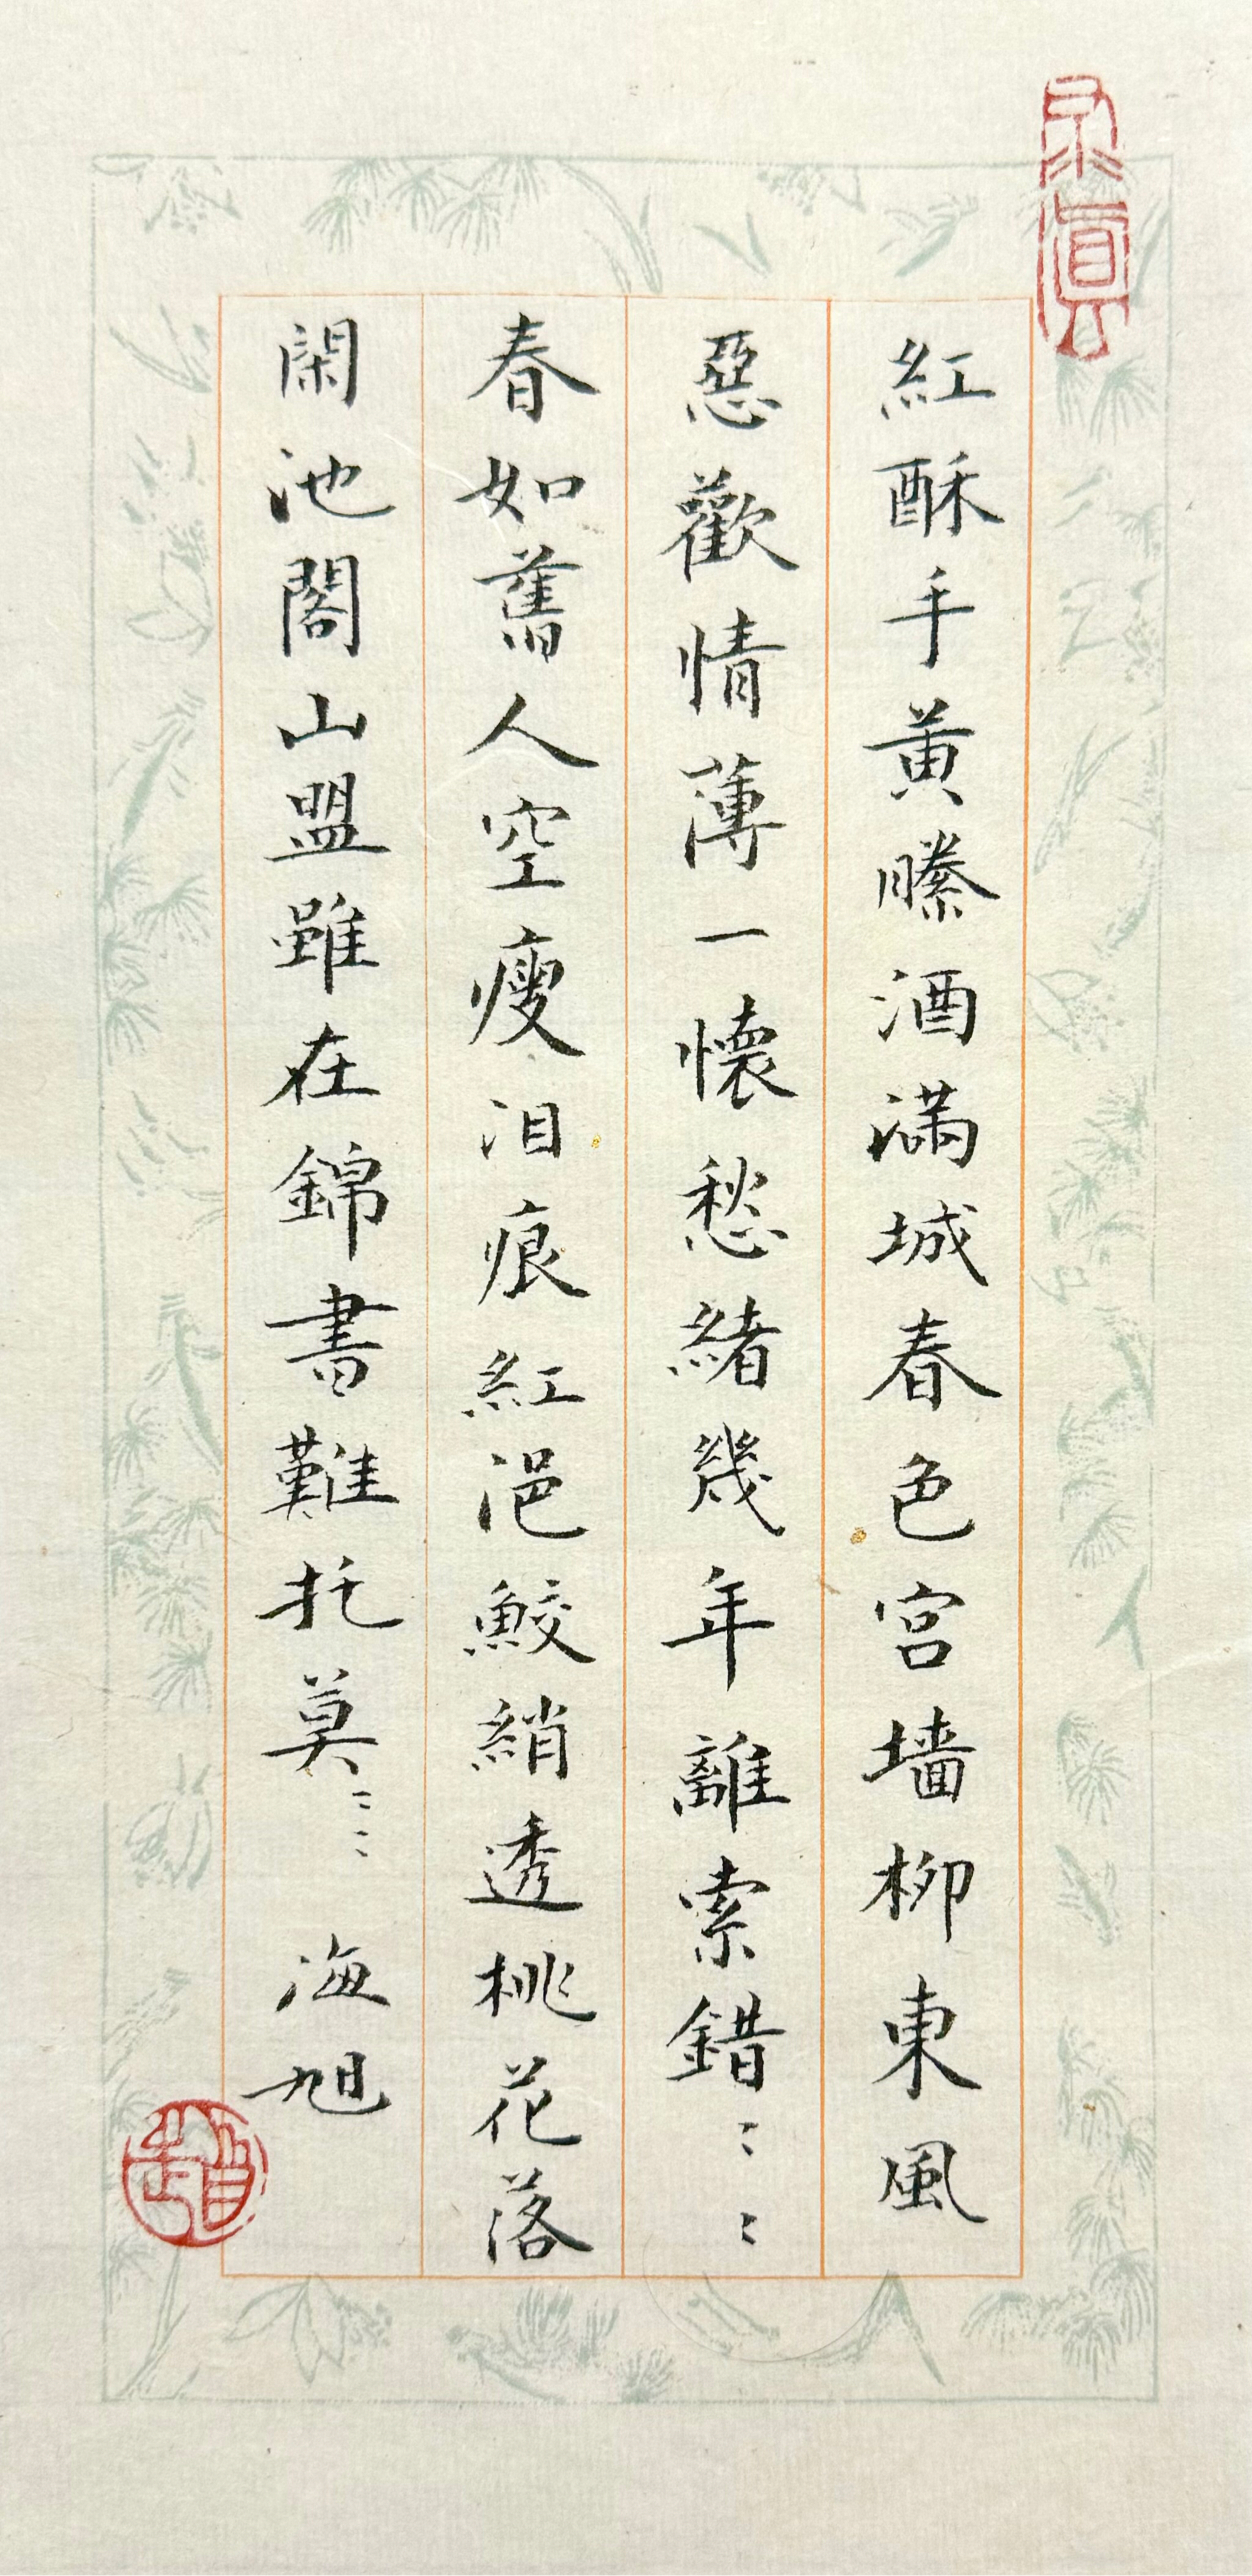 紅酥手黄縢酒滿城春色宮墙柳東風
惡歡情薄一懷愁緒幾年離索錯〻〻
春如舊人空瘦泪痕紅浥鮫綃透桃花落
閑池閣山盟雖在錦書難托莫〻〻 海旭